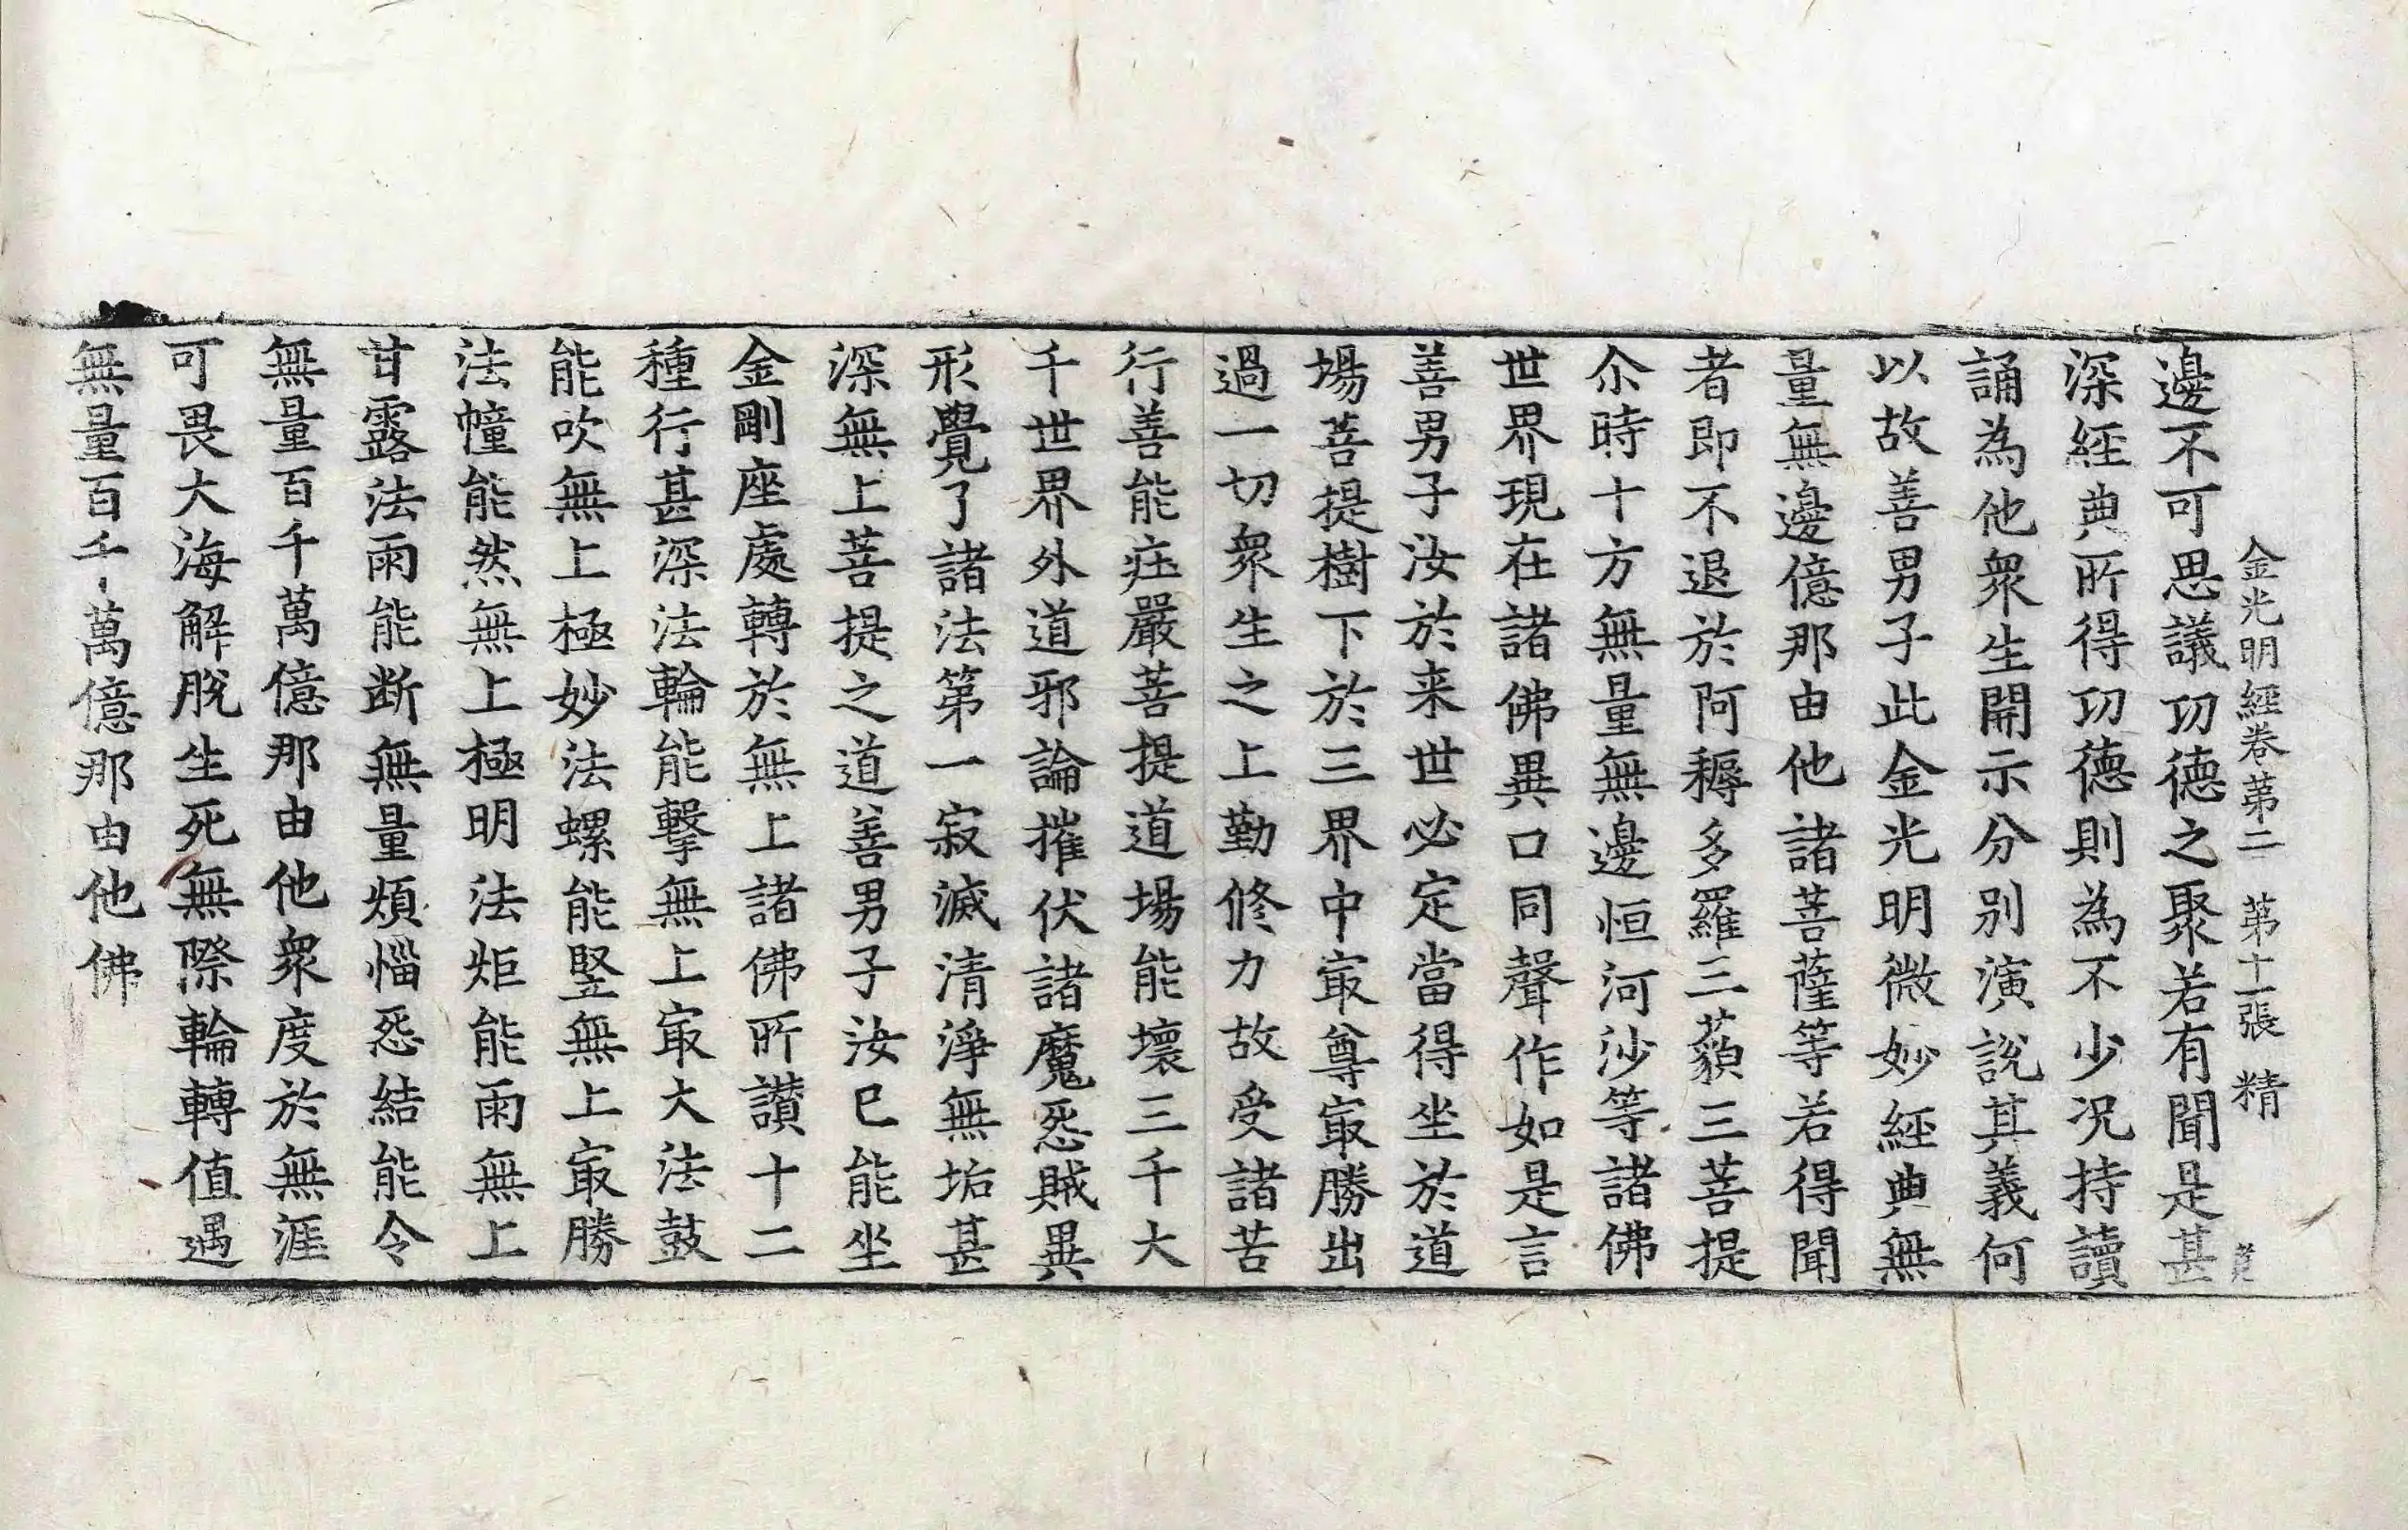 金光明經卷第二 第十一張 精
邊不可思議功德之聚若有聞是甚
深經典所得功德則為不少況持讀
誦為他衆生開示分別演說其義何
以故善男子此金光明微妙經典無
量無邊億那由他諸菩薩等若得聞
者即不退於阿耨多羅三藐三菩提
尒時十方無量無邊恒河沙等諸佛
世界現在諸佛異口同聲作如是言
善男子汝於来世必定當得坐於道
場菩提樹下於三界中㝡尊㝡勝出
過一切衆生之上勤修力故受諸苦
行善能庄嚴菩提道場能壞三千大
千世界外道邪論摧伏諸魔怨賊異
形覺了諸法第一寂滅清淨無垢甚
深無上菩提之道善男子汝已能坐
金剛座處轉於無上諸佛所讃十二
種行甚深法輪能擊無上㝡大法鼓
能吹無上極妙法螺能竪無上㝡勝
法幢能然無上極明法炬能雨無上
甘露法雨能断無量煩惱怨結能令
無量百千萬億那由他衆度於無涯
可畏大海解脫生死無際輪轉值遇
無量百千萬億那由他佛